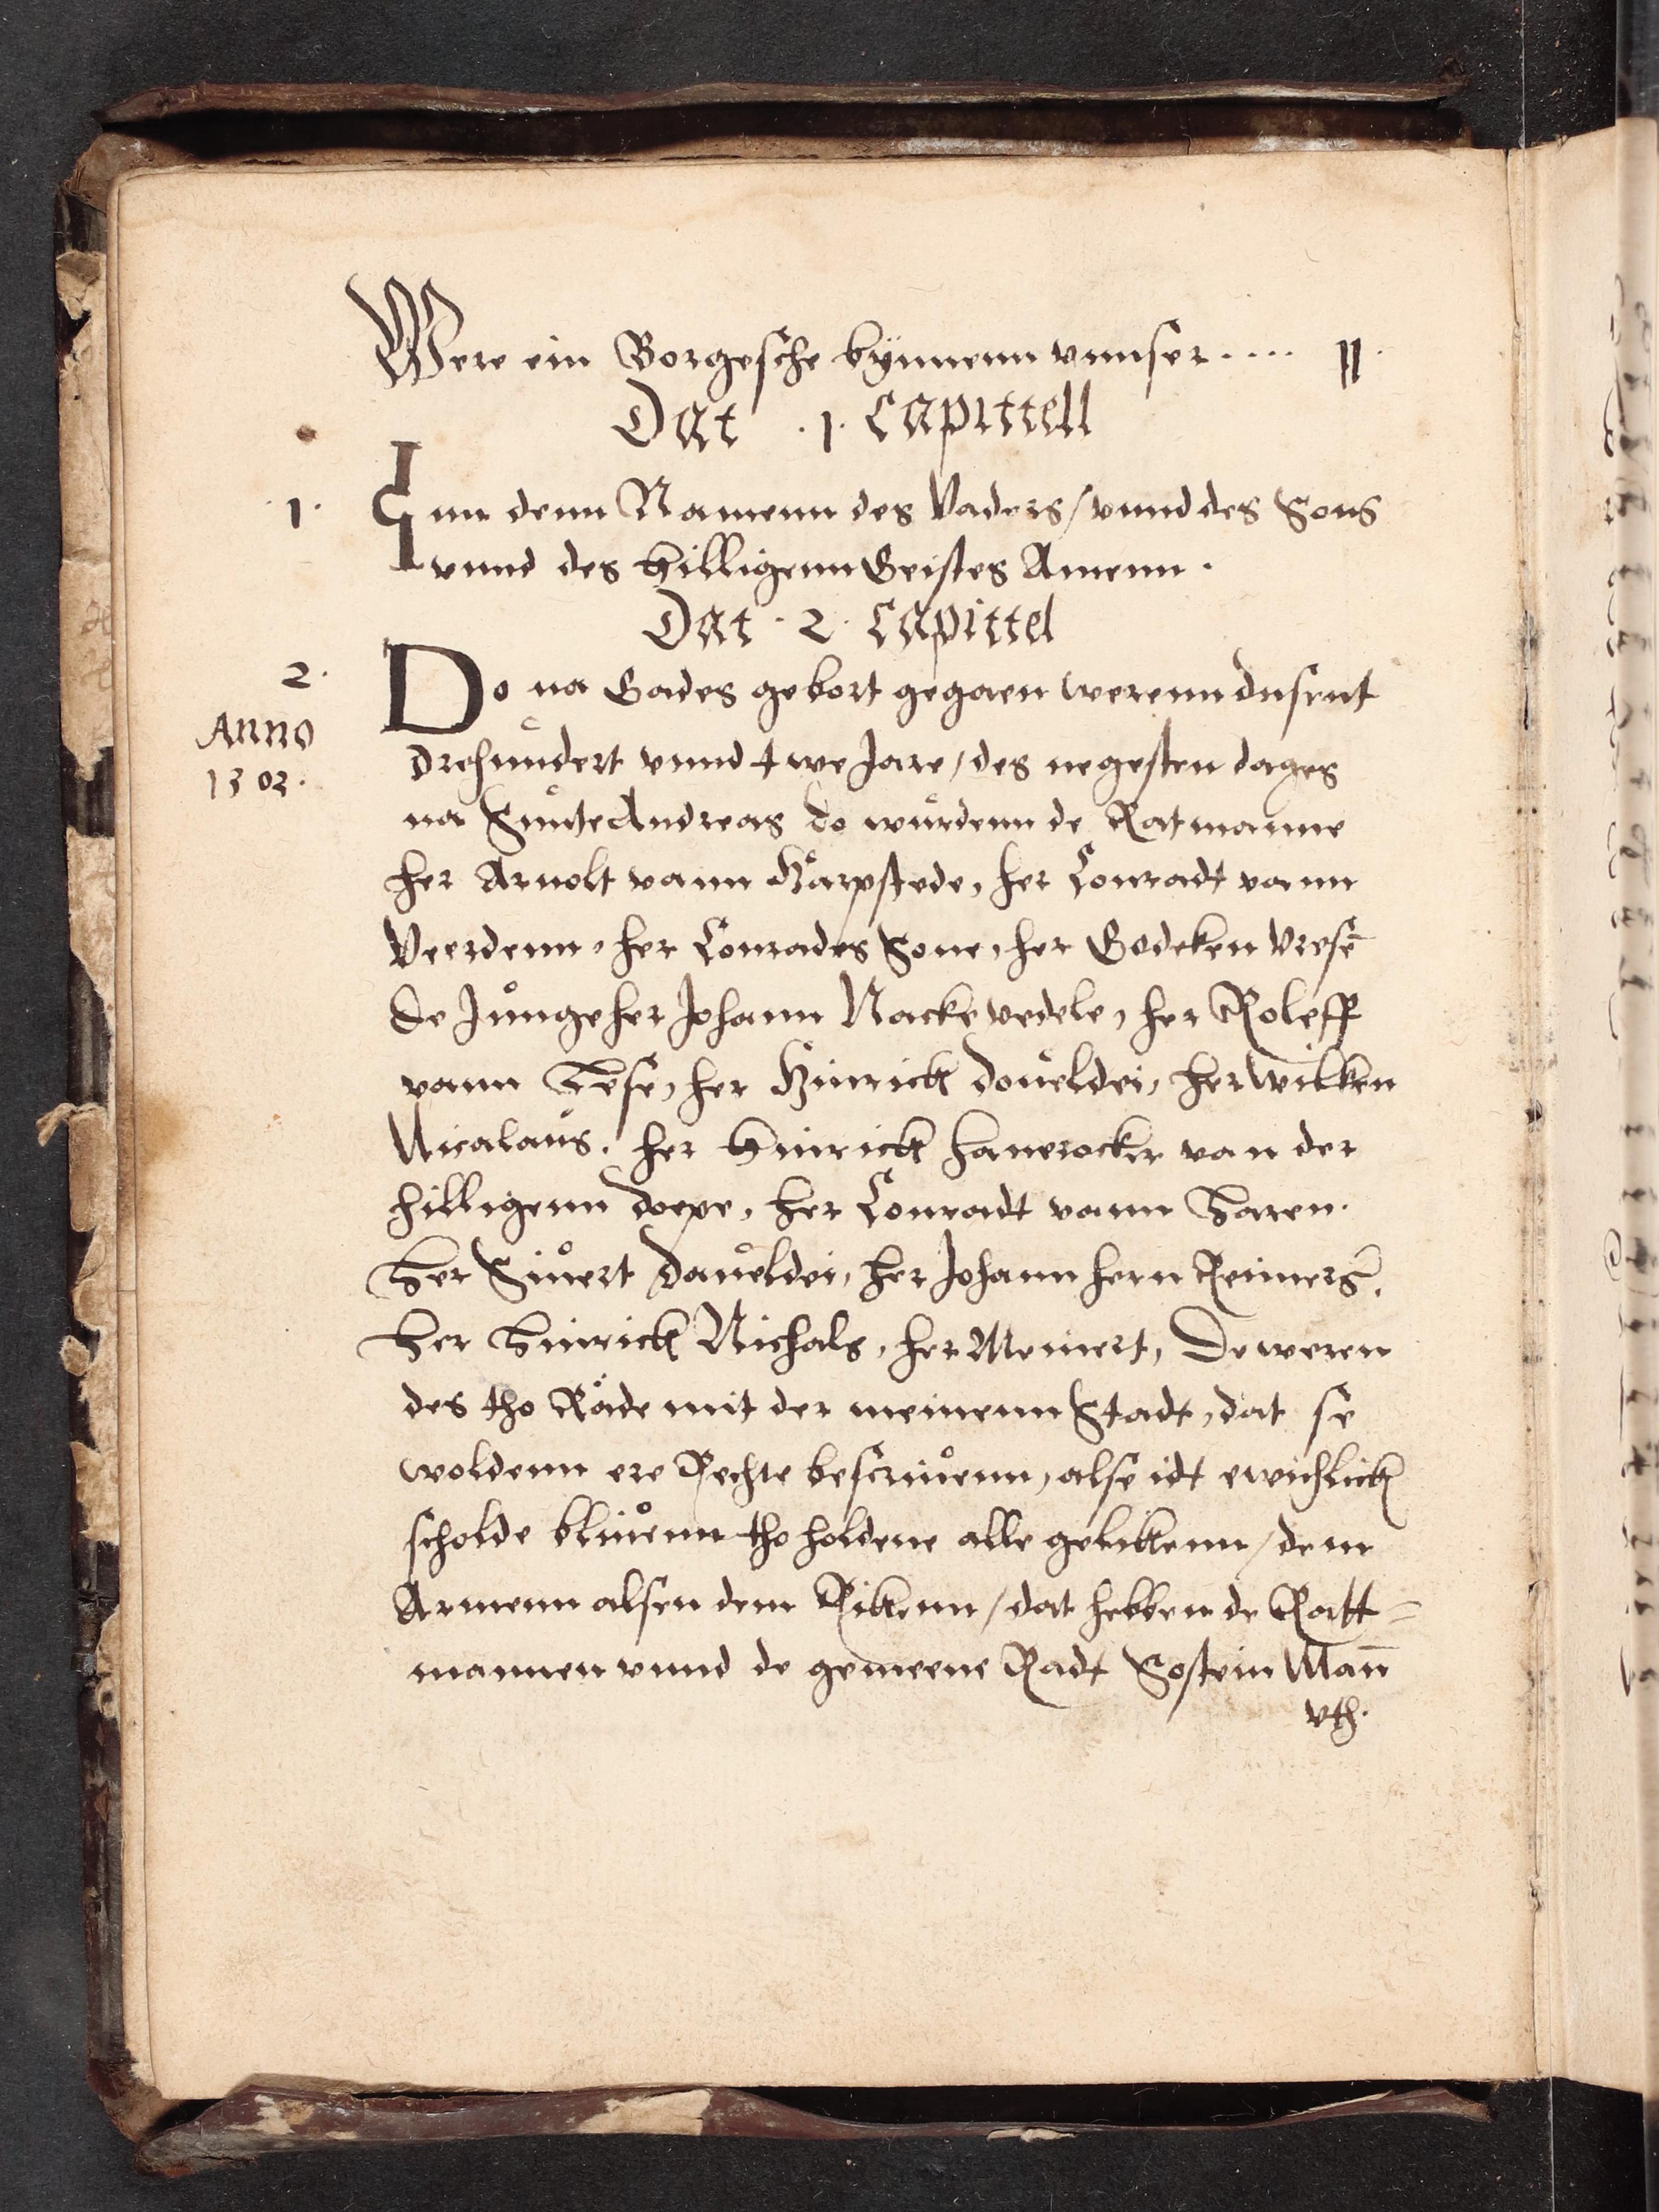 Were ein Borgesche bynnenn vnnser .... 11.
Dat .1. Capittell
.1. Inn denn Namenn des Vaders / vnnd des Sons
vnnd des Hilligenn Geistes Amenn.
Dat . 2 . Capittel
2. Do na Gades gebort gegaen werenn dusent
Anno
1302.
drehundert vnnd twe Jare / des negesten dages
na Sunte Andreas do wurdenn de Ratmanne
her Arnolt vann Harpstede, her Conradt vann
Veerdenn, her Conrades Sone, her Godeken Vrese
de Junge her Johann Nackevedele, her Roleff
vann Hese, her Hinrick Doueldei, her Wilken
Nicalaus. her Hinrick hanerocker van der
hilligenn doepe, her Conradt vann Haren.
Her Siuert Daueldei, her Johann hern Reimers,
Her Hinrick Nichals, her Meinert, De weren
des tho Rade mit der meinenn Stadt, dat se
woldenn ere Rechte bescriuenn, alse idt ewichlick
scholde bliuenn tho holdene alle gelikenn / dem
Armenn alsen dem Rikenn / dat hebben de Ratt=
mannen vnnd de gemeene Radt Sostein Man̄
vth.